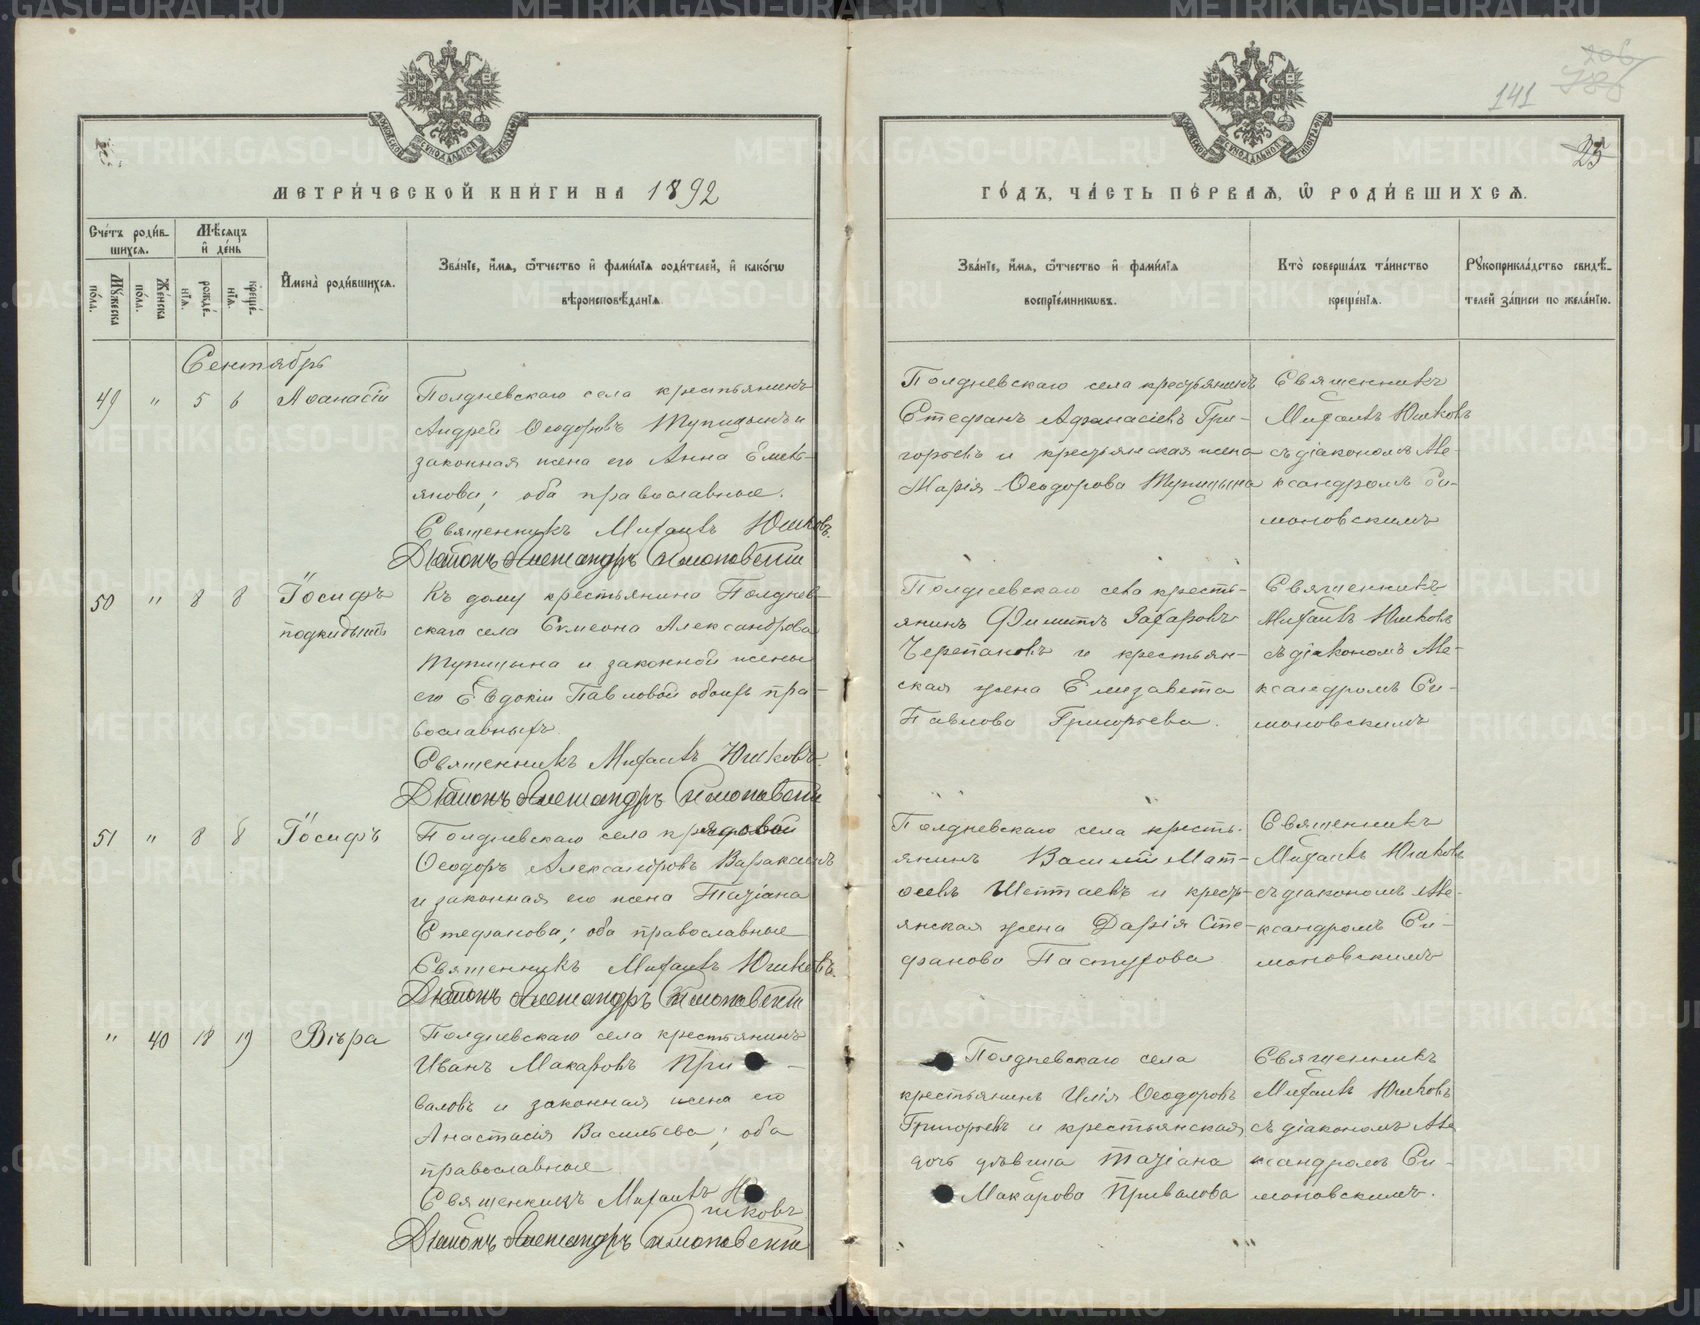 МЕТРИ́ЧЕСКОЙ КНИ́ГИ НА 1892
Сче́тъ роди́в-
шихсѧ.
Мѣ́сѧцъ
и҆ де́нь
Мꙋ́жеска
по́ла.
Же́нска
по́ла.
рожде́-
нїѧ.
креще́-
нїѧ.
И҆мена̀ роди́вшихсѧ.
Зва́нїе, и҆́мѧ, ѻ҆́тчество и҆ фамѝлїѧ роди́телей, и҆ како́гѡ
вѣроисповѣ́данїѧ.
Сентябрь
49 " 5 6 Аѳанасій
Полдневскаго села крестьянинъ
Андрей Ѳеодоровъ Тупицынъ и
законная жена его Анна Емель-
янова; оба православные.
Священникъ Михаилъ Юшковъ.
Діаконъ Александръ Симоновскій
50 " 8 8 Іосифъ
подкидышъ
Къ дому крестьянина Полднев-
скаго села Симеона Александрова
Тупицына и законной жены
его Евдокіи Павловой обоихъ пра-
вославныхъ.
Священникъ Михаилъ Юшковъ.
Діаконъ Александръ Симоновскій
51 " 8 8 Іосифъ
Полдневскаго села рядовой
Ѳеодоръ Александровъ Варакинъ
и законная его жена Татіана
Стефанова; оба православные
Священникъ Михаилъ Юшковъ.
Діаконъ Александръ Симоновскій
" 40 18 19 Вѣра
Полдневскаго села крестьянинъ
Иванъ Макаровъ При-
валовъ и законная жена его
Анастасія Васильева; оба
православные
Священникъ Михаилъ Ю
шковъ
Діаконъ Александръ Симоновскій
141
25
ГО́ДЪ, ЧА́СТЬ ПЕ́РВАѦ, Ѡ҆ РОДИ́ВШИХСѦ.
Зва́нїе, и҆́мѧ, ѻ҆́тчество и҆ фамѝлїѧ
воспрїе́мникѡвъ.
Кто̀ соверша́лъ та́инство
креще́нїѧ.
Рꙋкоприкла́дство свидѣ́-
телей за́писи по жела́нїю.
Полдневскаго села крестьянинъ
Стефанъ Афанасіевъ Гри-
горьевъ и крестьянская жена
Марія Ѳеодорова Тупицына
Священникъ
Михаилъ Юшковъ
съ діакономъ Але-
ксандромъ Си-
моновскимъ
Полдневскаго села кресть-
янинъ Филиппъ Захаровъ
Черепановъ и крестьян-
ская жена Елизавета
Павлова Григорьева.
Священникъ
Михаилъ Юшковъ
съ діакономъ Але-
ксандромъ Си-
моновскимъ
Полдневскаго села кресть-
янинъ Василій Мат-
ѳеевъ Шептаевъ и кресть-
янская жена Дарія Сте-
фанова Пастухова
Священникъ
Михаилъ Юшковъ
съ діакономъ Але-
ксандромъ Си-
моновскимъ
Полдневскаго села
крестьянинъ Илія Ѳеодоровъ
Григорьевъ и крестьянская
дочь дѣвица Татіана
Макарова Привалова
Священникъ
Михаилъ Юшковъ
съ діакономъ Але
ксандромъ Си-
моновскимъ.
METRIKI.GASO-URAL.RU